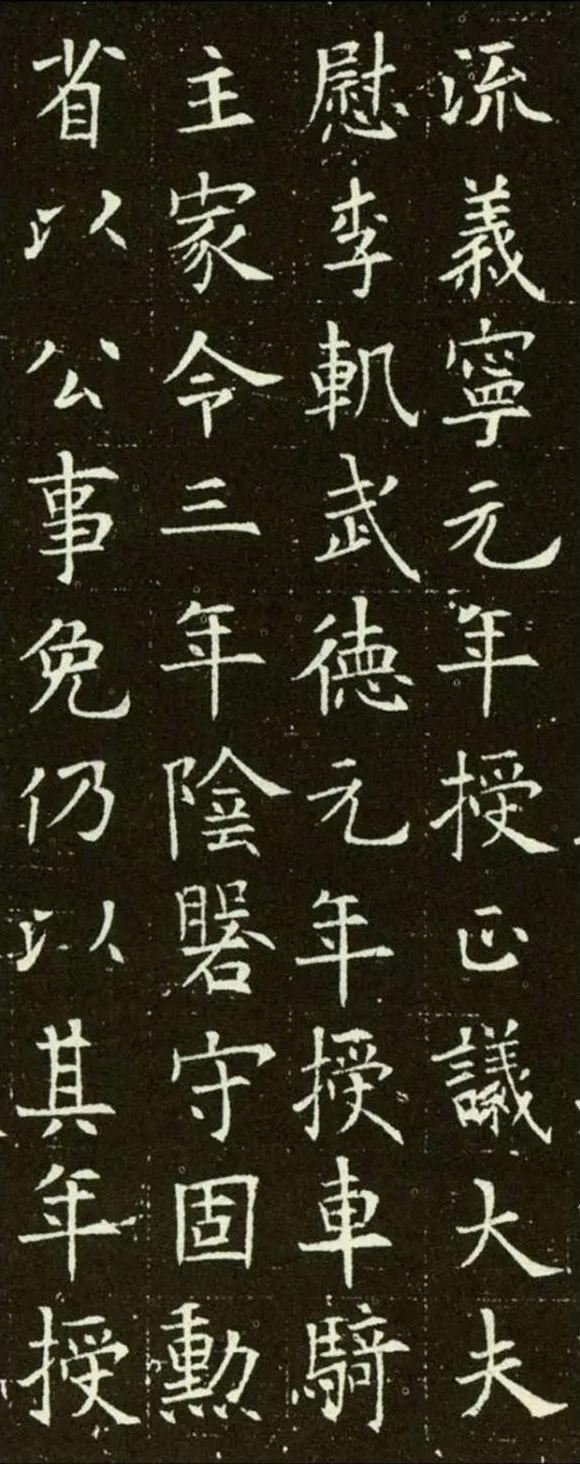 流義寧元年授正議大夫
慰李軌武徳元年授車騎
主家令三年陰罯守固勲
省以公事免仍以其年授